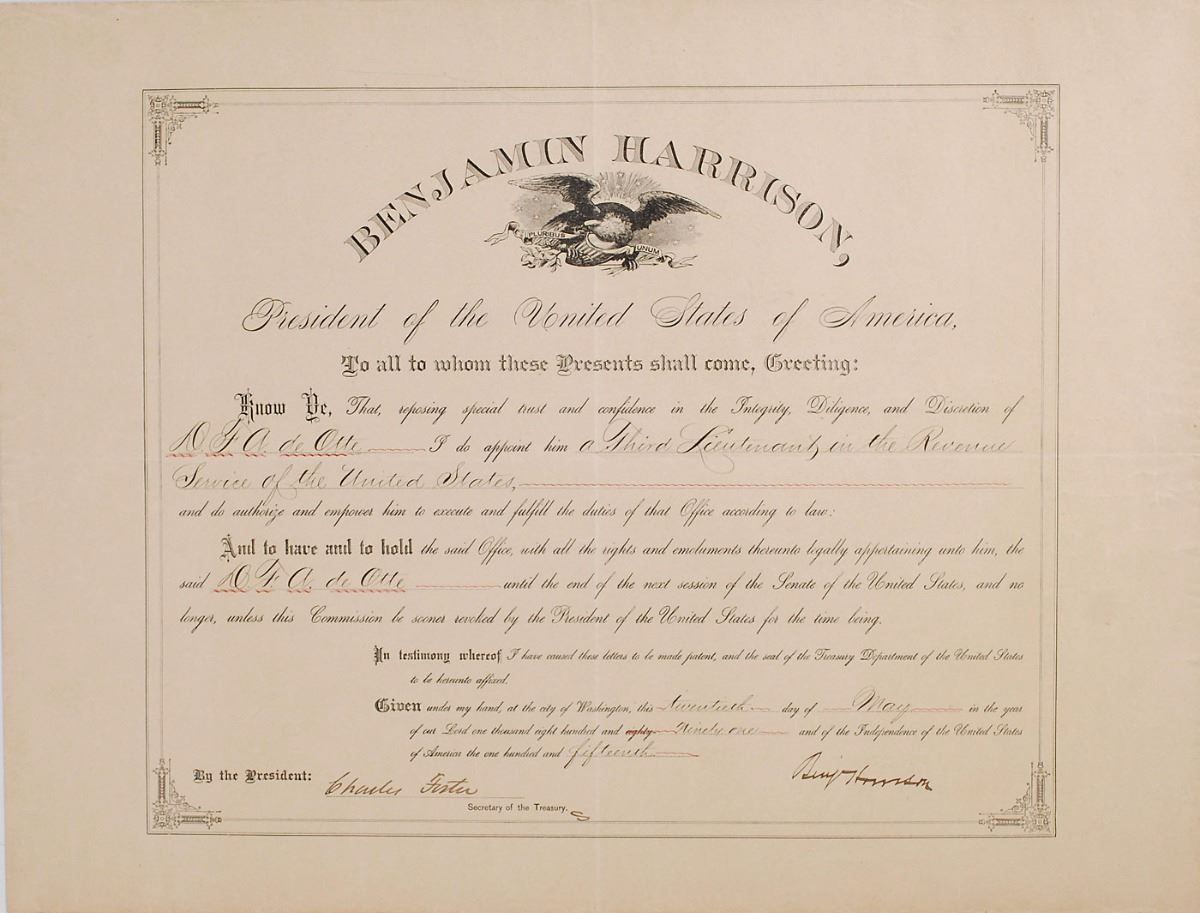 BENJAMIN HARRISON,
PLURIBUS UNUM
President of the United States of America,
To all to whom these Presents shall come, Greeting:
Know Ye, That, reposing special trust and confidence in the Integrity, Diligence, and Discretion of
D. F. A. de Otte I do appoint him a Third Lieutenant, in the Revenue
Service of the United States,
and do authorize and empower him to execute and fulfill the duties of that Office according to law:
And to have and to hold the said Office, with all the rights and emoluments thereunto legally appertaining unto him, the
said D. F. A. de Otte until the end of the next session of the Senate of the United States, and no
longer, unless this Commission be sooner revoked by the President of the United States for the time being.
In testimony whereof I have caused these letters to be made patent, and the seal of the Treasury Department of the United States
to be hereunto affixed.
Given under my hand, at the city of Washington, this twentieth day of May in the year
of our Lord one thousand eight hundred and eighty Ninety one and of the Independence of the United States
of America the one hundred and fifteenth
By the President:
Benj Harrison
Charles Foster
Secretary of the Treasury.